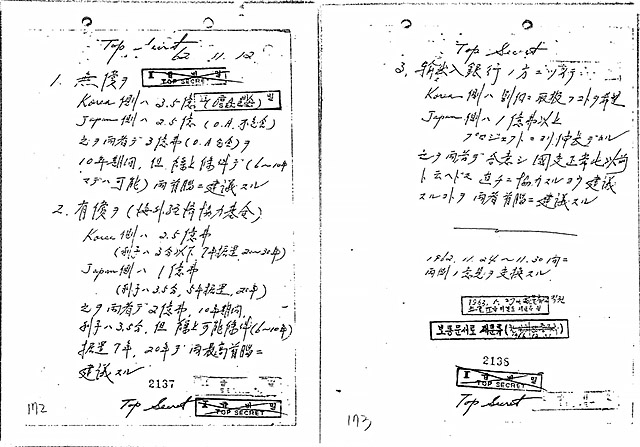 Top Secret
62. 11. 12
1. 無償ヲ
TOP SECRET
Korea側ハ 3.5億弗
Japan側ハ 2.5億 (O.A.ヲ含ム)
之ヲ両者デ3億弗 (O.A.ヲ含ム)ヲ
10年期間, 但 繰上条件デ (6〜10年
マデハ可能) 両首脳ニ建議スル
2. 有償ヲ (海外経済協力基金)
Korea側ハ 2.5億弗
(利子ハ3分以下, 7年据置, 20〜30年)
Japan側ハ 1億弗
(利子ハ3.5分, 5年据置, 20年)
之ヲ両者デ2億弗, 10年期間,
利子ハ3.5分, 但 繰上可能条件(6〜10年)
据置7年, 20年デ両最高首脳ニ
建議スル
2137
TOP SECRET
Top Secret
172
Top Secret
3. 輸出入銀行ノ方ニツイテ
Korea側ハ 別個取扱フコトヲ希望
Japan側ハ 1億弗以上
プロジェクトニヨリ伸長デキル
之ヲ両者デ合意シ 国交正常化以前
ト云ヘドモ 直チニ協力スルヨウ建議
スルコトヲ 両首脳ニ建議スル
1962. 11. 24〜11. 30 間ニ
両側ノ意見ヲ交換スル
보통문서로 재분류
2138
TOP SECRET
Top Secret
173